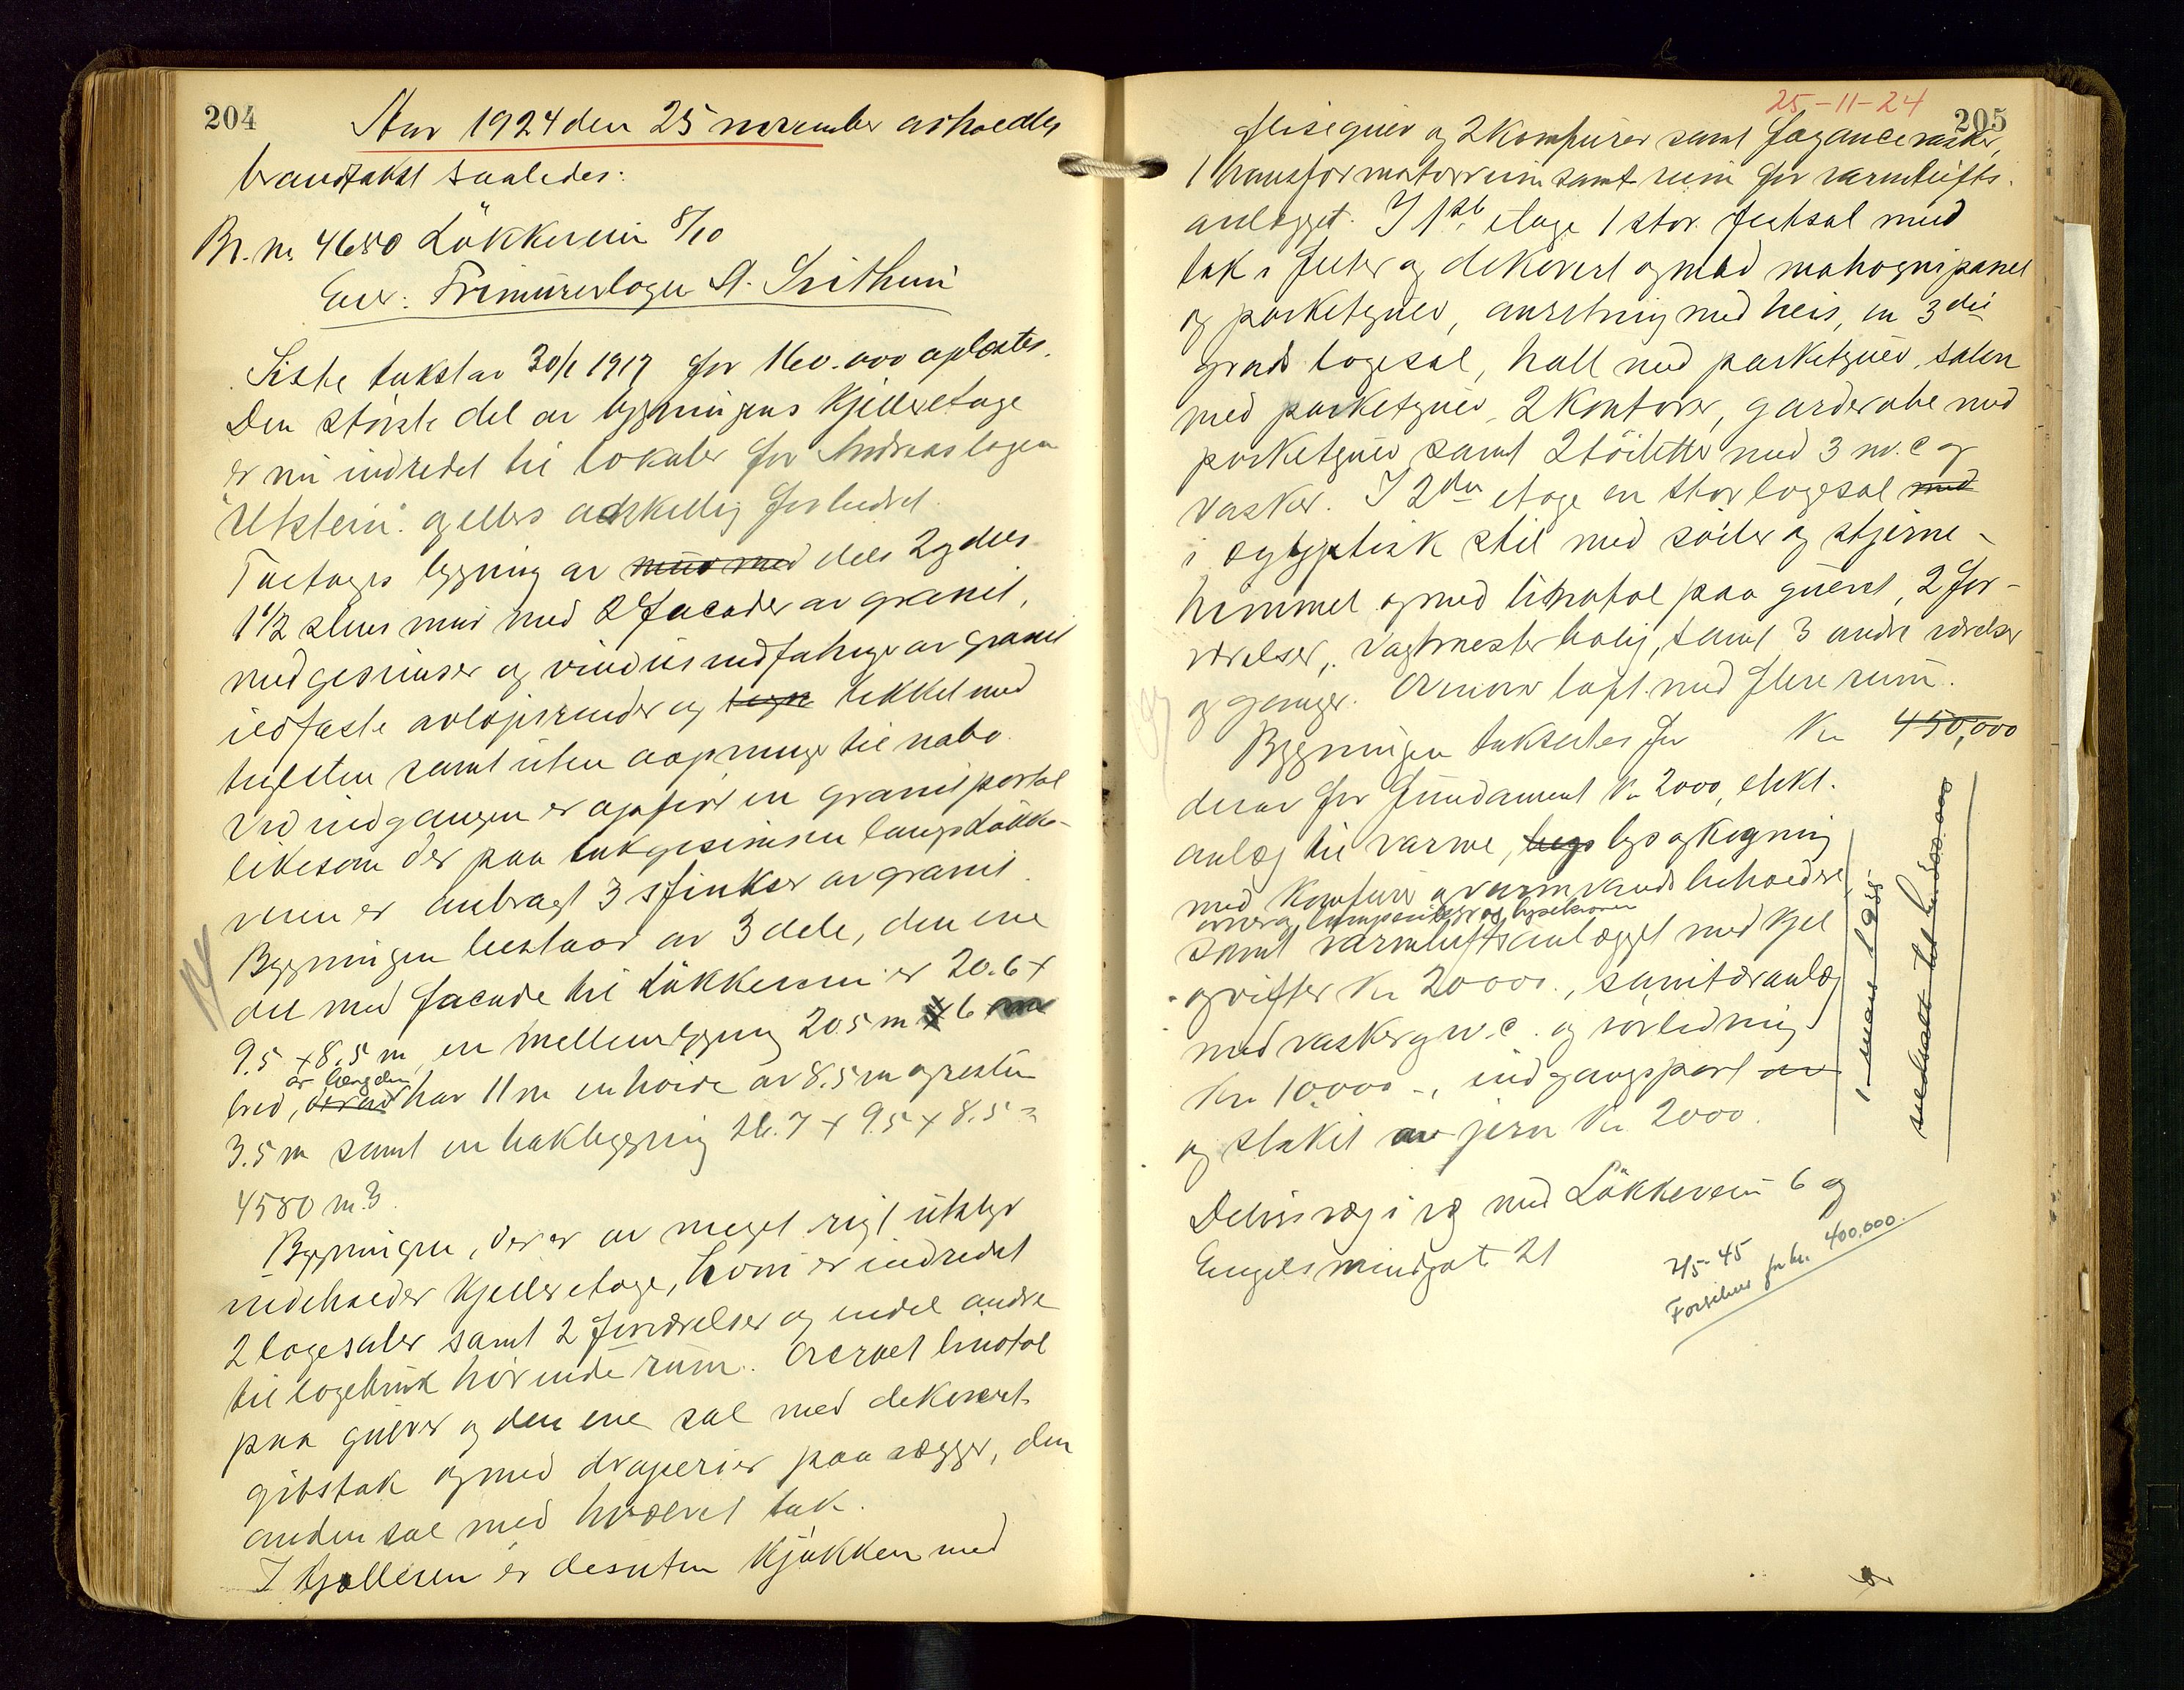 204
Aar 1924 den 25 november avholdtes
brandtakst saaledes:
Br. nr. 4680 Lökkeveien 8/10
Eier: Frimurerlogen St. Svithun
Siste takst av 30/1 1917 for 160.000 oplæstes.
Den störste del av bygningens kjelleretage
er nu indredet til lokaler for Andreaslogen
"Utstein" og ellers adskillig forbedret.
Toetages bygning av mur med dels 2 og dels
1 1/2 stens mur med 2 facader av granit,
med gesimser og vindusindfatninger av granit
ildfaste avlöpsrender og tegn tækket med
teglsten samt uten aapninger til nabo.
Ved indgangen er opfört en granitportal
likesom der paa takgesimsen langs Lökke-
veien er anbragt 3 sfinkser av granit.
Bygningen bestaar av 3 dele, den ene
del med facade til Lökkeveien er 20.6 x
9.5 x 8.5 m, en mellembygning 20.5 m x 6 m
av længden
bred, derav har 11 m en höide av 8.5 m og resten
3.5 m samt en bakbygning 26.7 x 9.5 x 8.5 =
4580 m.3.
Bygningen, der er av meget rigt utstyr
indeholder kjelleretage, hvori er indredet
2 logesaler samt 2 forværelser og endel andre
til logebruk hörende rum. Overalt linotol
paa gulver og den ene sal med dekorert
gibstak og med draperier paa vægger, den
anden sal med hvælvet tak.
I kjelleren er desuten kjökken med
25-11-24
205
flisegulv og 2 komfurer samt fayancevasker,
1 transformatorrum samt rum for varmlufts-
anlægget. I 1ste etage 1 stor festsal med
tak i felter og dekorert og med mahognipanel
og parketgulv, anretning med heis, en 3die
grads logesal, hall med parketgulv, salon
med parketgulv, 2 kontorer, garderobe med
parketgulv samt 2 toiletter med 3 w.c og
vasker. I 2den etage en stor logesal med
i ægyptisk stil med söiler og stjerne-
himmel og med linotol paa gulvet, 2 for-
værelser, vagtmesterbolig, samt 3 andre værelser
og ganger. Ovenover loft med flere rum.
Bygningen takseres for Kr 450,000
derav for fundament Kr 2000, elekt.
anlæg til varme, lys og kogning
med komfur og varmvandsbeholdere
ovner og lampe og lysekroner
samt varmluftsanlægget med kjel
og vifter Kr 20000., sanitæranlæg
med vasker og w.c. og rörledning
Kr 10.000-, indgangsport av
og stakit av jern Kr. 2000.
1 mars 1955
nedsatt til kr. 300.000
Delvis væg i væg med Lökkeveien 6 og
Engelsmindegate 21
2/5-45
Forsikres for kr. 400.000.